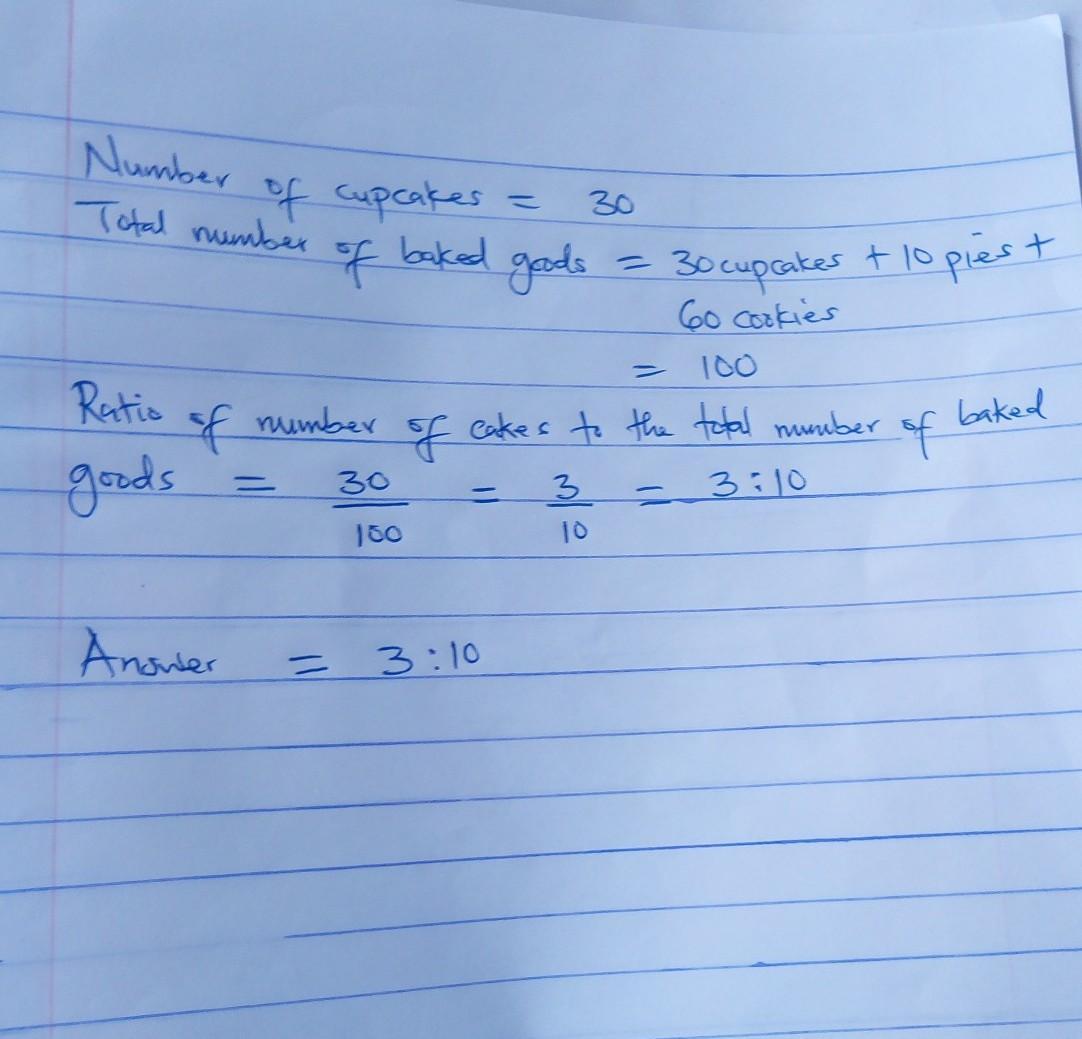 Number of cupcakes = 30
Total number of baked goods = 30 cupcakes + 10 pies +
60 cookies
= 100
Ratio of number of cakes to the total number of baked
goods = 30/100 = 3/10 = 3:10
Answer = 3:10